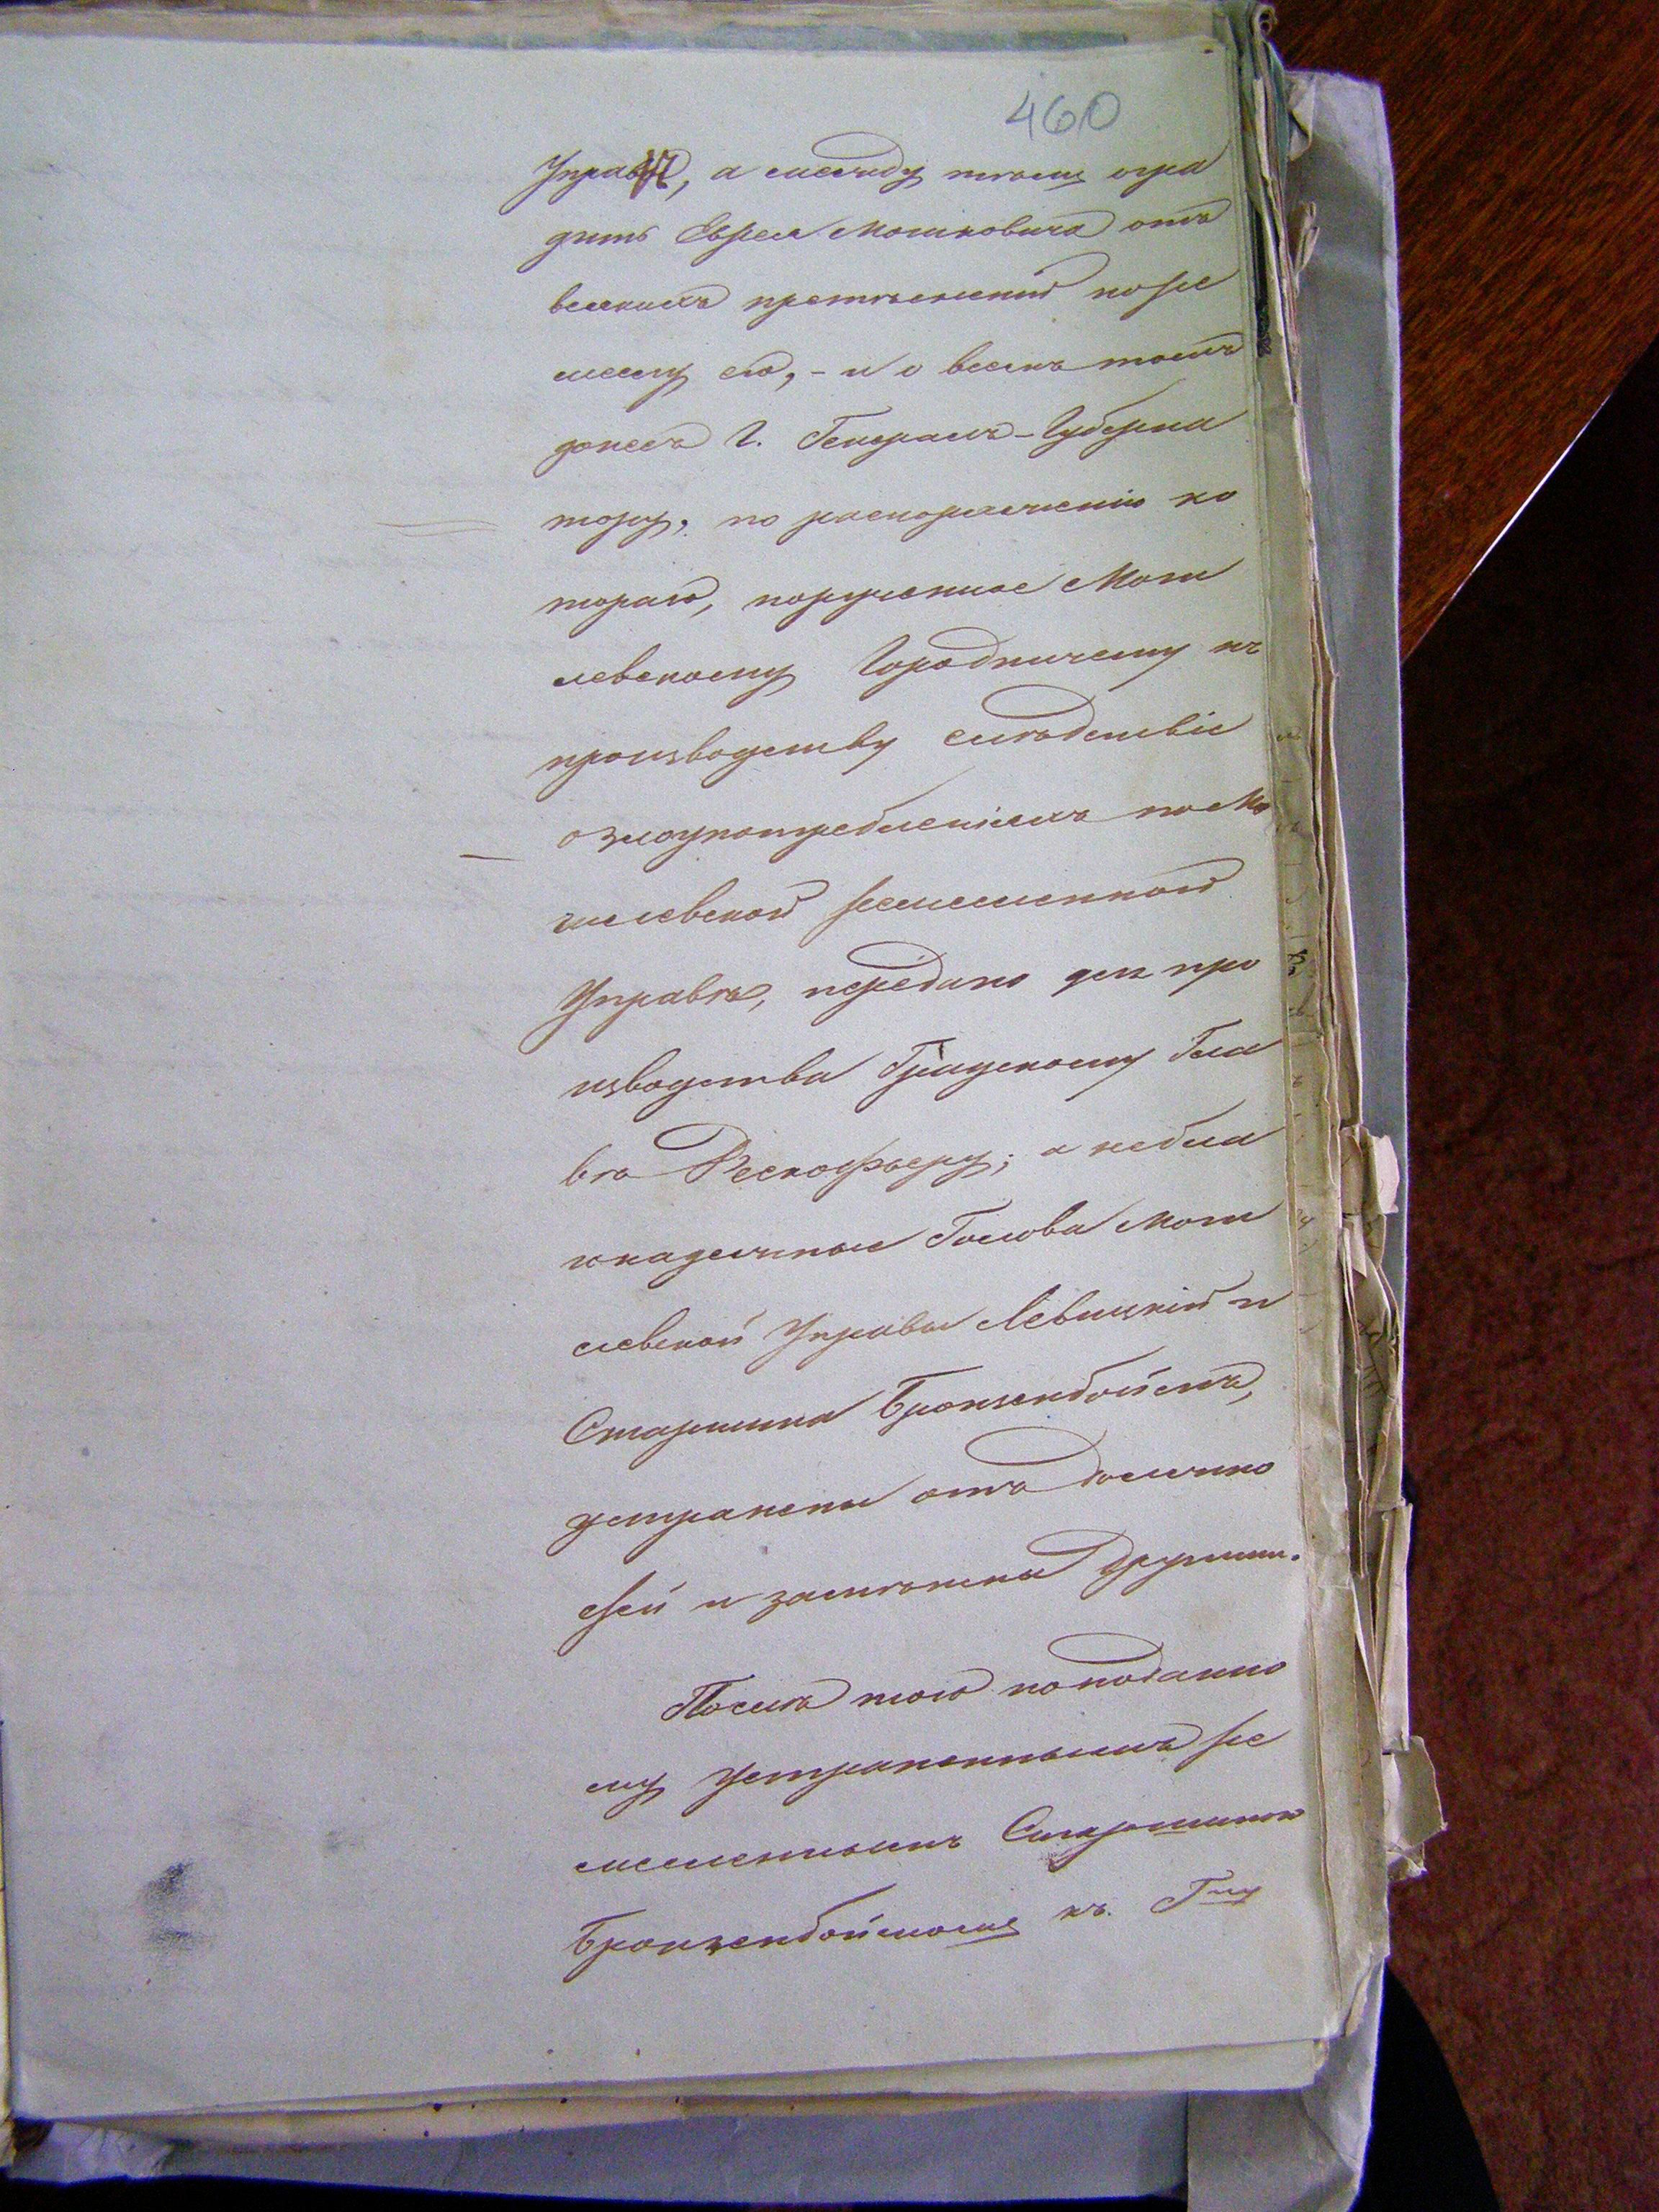 460
Управѣ, а между тѣмъ огра
дить Еврея Мошковича отъ
всякихъ притѣсненій по ре
меслу его, - и о всемъ томъ
донесъ Г. Генералъ-Губерна
тору, по распоряженію ко
тораго, порученное Моги
левскому Городничему къ
производству слѣдствіе
о злоупотребленіяхъ по Мо
гилевской ремесленной
Управѣ, передано для про
изводства Градскому Гла
вѣ
Рескоферу; а небла
гонадежные Голова Моги
левской Управы Левицкій и
Старшина Бронзенбоймъ,
устранены отъ должно
стей и замѣнены другими.
Послѣ того по поданно
му устраненнымъ ре
месленнымъ Старшиною
Бронзенбоймомъ къ Г-ну